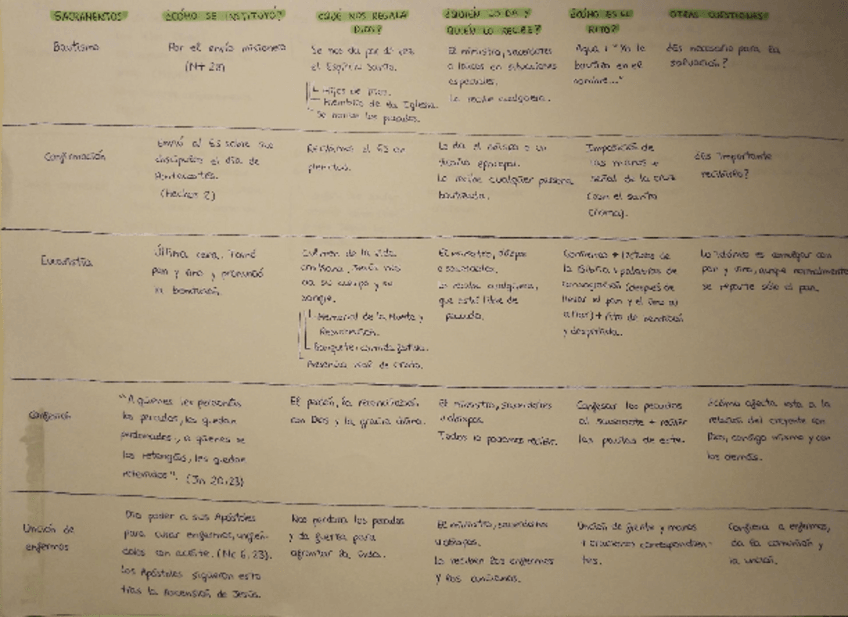 SACRAMENTOS
¿CÓMO SE INSTITUYÓ?
¿QUÉ NOS REGALA
DIOS?
¿QUIÉN LO DA Y
QUIÉN LO RECIBE?
¿CÓMO ES EL
RITO?
OTRAS CUESTIONES
Bautismo
Por el envío misionero
Se nos da por 1ª vez
el Espíritu Santo.
Hijos de Dios.
Miembro de la Iglesia.
Se borran los pecados.
El ministro, sacerdotes
o laicos en situaciones
especiales.
Lo recibe cualquiera.
Agua + "Yo te
bautizo en el
nombre..."
¿Es necesario para la
salvación?
Confirmación
Envió al ES sobre sus
discípulos el día de
Pentecostés.
(Hechos 2)
Recibimos el ES en
plenitud.
Lo da el obispo o un
episcopal.
Lo recibe cualquier persona
bautizada.
Imposición de
las manos +
señal de la cruz
(con el santo
crisma).
¿Es importante
recibirlo?
Eucaristía
Última cena, tomó
pan y vino y pronunció
la bendición.
Culmen de la vida
cristiana, Jesús nos
da su cuerpo y su
sangre.
Memorial de la Muerte y
Resurrección.
Banquete: comida festiva.
Presencia real de Cristo.
El ministro, obispos
o sacerdotes.
Lo recibe cualquiera,
que esté libre de
pecado.
+ lecturas de
la Biblia + palabras de
consagración (después de
llevar el pan y el vino al
altar) + rito de
y despedida.
Lo idóneo es comulgar con
pan y vino, aunque normalmente
se reparte sólo el pan.
Confesión
"A quienes les perdonéis
los pecados, les quedan
perdonados, a quienes se
los retengáis, les quedan
retenidos". (Jn 20,23)
El perdón, la reconciliación
con Dios y la gracia divina.
El ministro, sacerdotes
u obispos.
Todos lo podemos recibir.
Confesar los pecados
al sacerdote + recibir
las pautas de este.
¿Cómo afecta esto a la
relación del creyente con
Dios, consigo mismo y con
los demás.
Unción de
enfermos
Dio poder a sus Apóstoles
para curar enfermos,
con aceite.
Los Apóstoles siguieron esto
tras la Ascensión de Jesús.
Nos perdona los pecados
y da fuerza para
afrontar la vida.
El ministro, sacerdotes
u obispos.
Lo reciben los enfermos
y los ancianos.
Unción de frente y manos
+ oraciones correspondien-
tes.
Confiesa a enfermos,
da la comunión y
la unción.